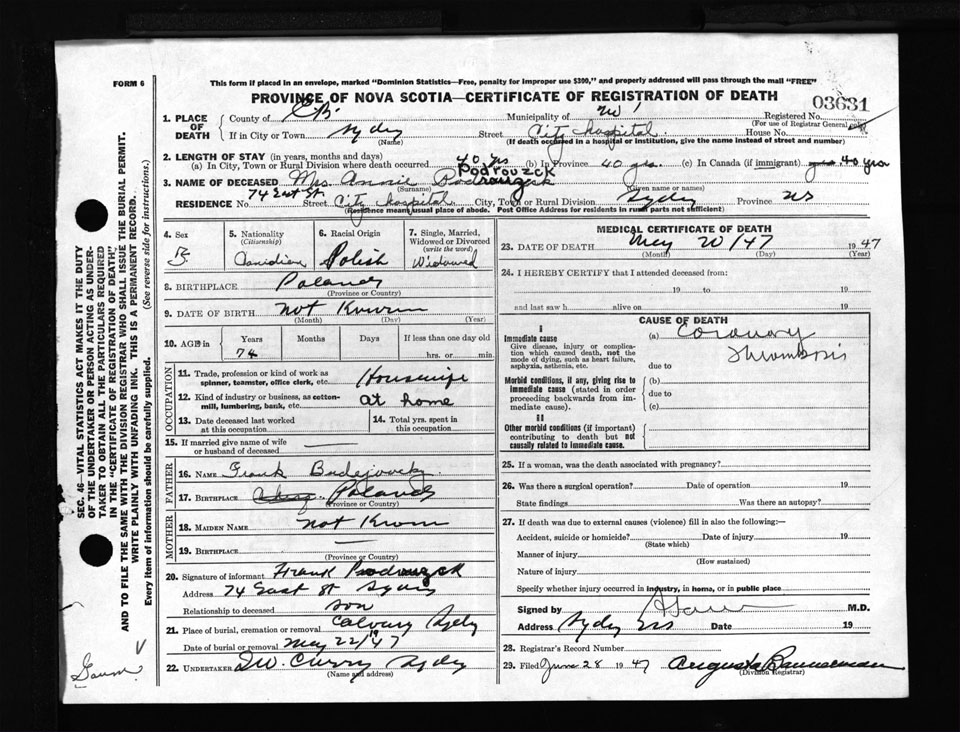 FORM 6
This form if placed in an envelope, marked "Dominion Statistics—Free, penalty for improper use $300," and properly addressed will pass through the mail "FREE"
PROVINCE OF NOVA SCOTIA—CERTIFICATE OF REGISTRATION OF DEATH
03631
1. PLACE OF DEATH
County of C.B. Municipality of Registered No.
(For use of Registrar General only)
If in City or Town Sydney Street City Hospital House No.
(Name) (If death occurred in a hospital or institution, give the name instead of street and number)
2. LENGTH OF STAY (in years, months and days)
(a) In City, Town or Rural Division where death occurred 40 yrs (b) In Province 40 yrs. (c) In Canada (if immigrant) yrs. 40 yrs
Podrouzek
3. NAME OF DECEASED Mrs. Annie Podrouzek
(Surname) (Given name or names)
RESIDENCE No. 74 East St Street City Hospital City, Town or Rural Division Sydney Province NS
(Residence means usual place of abode. Post Office Address for residents in rural parts not sufficient)
4. Sex F
5. Nationality (Citizenship) Canadian
6. Racial Origin Polish
7. Single, Married, Widowed or Divorced (write the word) Widowed
8. BIRTHPLACE Poland
(Province or Country)
9. DATE OF BIRTH not Known
(Month) (Day) (Year)
10. AGED in Years Months Days If less than one day old
74 hrs. or min.
OCCUPATION
11. Trade, profession or kind of work as spinner, teamster, office clerk, etc. Housewife
12. Kind of industry or business, as cotton-mill, lumbering, bank, etc. at home
13. Date deceased last worked at this occupation
14. Total yrs. spent in this occupation
15. If married give name of wife or husband of deceased
FATHER
16. NAME Frank
17. BIRTHPLACE Poland
(Province or Country)
MOTHER
18. MAIDEN NAME not Known
19. BIRTHPLACE
(Province or Country)
20. Signature of informant Frank Podrouzek
Address 74 East St Sydney
Relationship to deceased son
21. Place of burial, cremation or removal Calvary Sydney
Date of burial or removal May 22/1947
22. UNDERTAKER Curry Sydney
(Name and address)
MEDICAL CERTIFICATE OF DEATH
23. DATE OF DEATH May 20/47 1947
(Month) (Day) (Year)
24. I HEREBY CERTIFY that I attended deceased from:
19 to 19
and last saw h alive on 19
CAUSE OF DEATH
I
Immediate cause (a) Coronary
Give disease, injury or complication which caused death, not the mode of dying, such as heart failure, asphyxia, asthenia, etc. Thrombosis
due to
Morbid conditions, if any, giving rise to immediate cause (stated in order proceeding backwards from immediate cause).
(b)
due to
(c)
II
Other morbid conditions (if important) contributing to death but not causally related to immediate cause.
25. If a woman, was the death associated with pregnancy?
26. Was there a surgical operation? Date of operation 19
State findings Was there an autopsy?
27. If death was due to external causes (violence) fill in also the following:—
Accident, suicide or homicide? Date of injury 19
(State which)
Manner of injury
(How sustained)
Nature of injury
Specify whether injury occurred in industry, in home, or in public place
Signed by M.D.
Address Sydney NS Date 19
28. Registrar's Record Number
29. Filed June 28 1947 Augusta Bannerman
(Division Registrar)
SEC. 46—VITAL STATISTICS ACT MAKES IT THE DUTY
OF THE UNDERTAKER OR PERSON ACTING AS UNDER-
TAKER TO OBTAIN ALL THE PARTICULARS REQUIRED
IN THE "CERTIFICATE OF REGISTRATION OF DEATH,"
AND TO FILE THE SAME WITH THE DIVISION REGISTRAR WHO SHALL ISSUE THE BURIAL PERMIT.
WRITE PLAINLY WITH UNFADING INK. THIS IS A PERMANENT RECORD.
Every item of information should be carefully supplied. (See reverse side for instructions.)